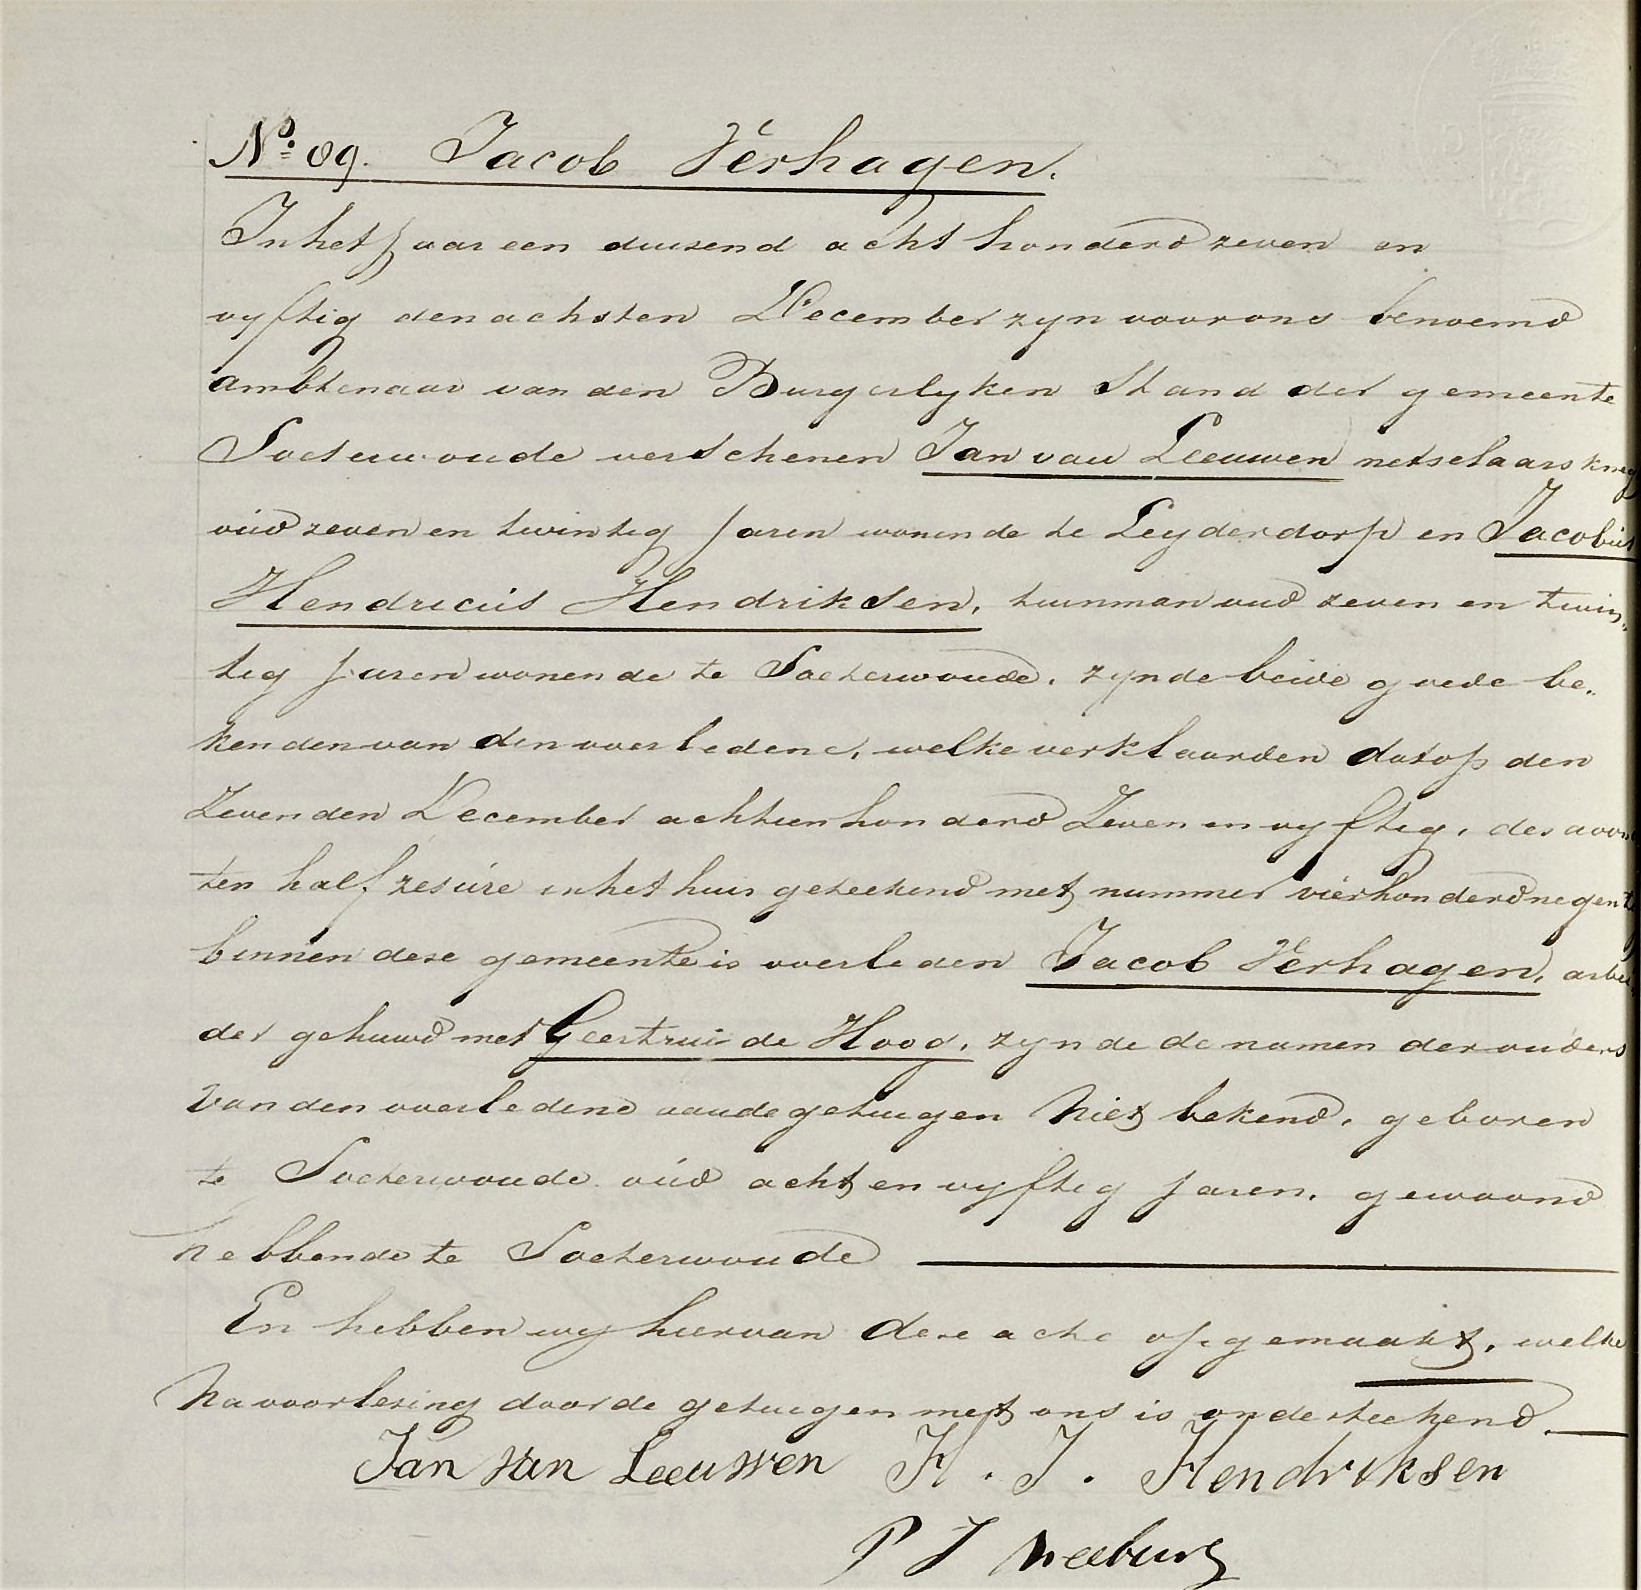 No. 89. Jacob Verhagen.
In het Jaar een duizend acht honderd zeven en
vyftig den achsten December zyn voor ons benoemd
ambtenaar van den Burgerlyken Stand der gemeente
Soeterwoude verschenen Jan van Leeuwen metselaars kneg
oud zeven en twintig Jaren wonende te Leyderdorp en Jacobus
Hendricus Hendriksen, tuinman oud zeven en twin„
tig Jaren wonende te Soeterwoude. zynde beide goede be„
kenden van den overledene, welke verklaarden dat op den
Zevenden December achttienhonderd Zeven en vyftig, des avon
ten half zes ure in het huis geteekend met nummer vierhonderd negentig
binnen deze gemeente is overleden Jacob Verhagen, arbei
der gehuwd met Geertrui de Hoog, zynde de namen der ouders
van den overledene aan de getuigen Niet bekend, geboren
te Soeterwoude oud acht en vyftig Jaren, gewoond
hebbende te Soeterwoude
En hebben wy hiervan deze acte opgemaakt, welke
Na voorlezing door de getuigen met ons is onderteekend.
Jan van Leeuwen H. J. Hendriksen
P J